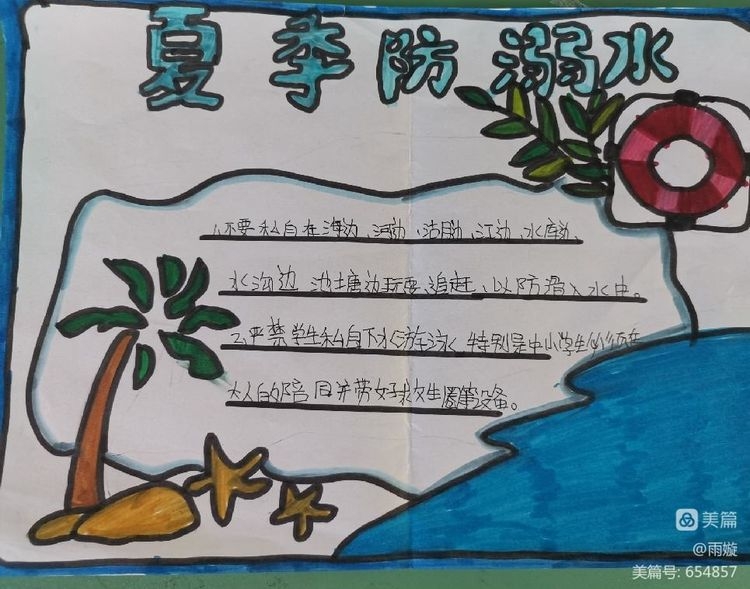 夏季防溺水
1、不要私自在海边、河边、湖边、江边、水库边、
水沟边、池塘边玩耍、追赶，以防滑入水中。
2、严禁学生私自下水游泳，特别是中小学生必须在
大人的陪同并带好救生圈等设备。
美篇
@雨璇
美篇号: 654857